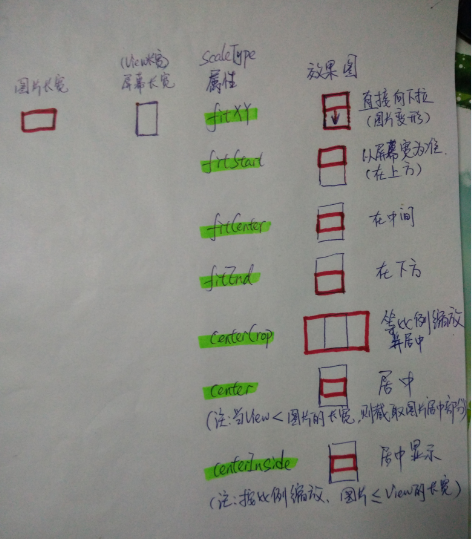 图片长宽
(View长宽)
屏幕长宽
scaleType
属性
效果图
fitXY
直接向下拉
(图片变形)
fitStart
以屏幕宽为准.
(在上方)
fitCenter
在中间
fitEnd
在下方
centerCrop
等比例缩放
并居中
center
居中
(注:当View<图片的长宽,则截取图片居中部分)
centerInside
居中显示
(注:按比例缩放、图片≤View的长宽)